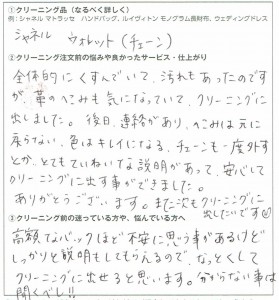 ①クリーニング品（なるべく詳しく）
例：シャネル マトラッセ　ハンドバック、ルイヴィトン モノグラム長財布、ウェディングドレス
シャネル　ウォレット（チェーン）
②クリーニング注文前の悩みや良かったサービス・仕上がり
全体的にくすんでいて、汚れもあったのです
が、革のへこみも気になっていて、クリーニングに
出しました。後日、連絡があり、へこみは元に
戻らない、色はキレイになる、チェーンも一度外す
とか、とてもていねいな説明があって、安心して
クリーニングに出す事ができました。
ありがとうございます。またこちらもクリーニングに
出したいです
③クリーニング前の迷っている方や、悩んでいる方へ
高額なバックほど不安に思う事があるけど
しっかりと説明もしてもらえるので、なっとくして
クリーニングに出せると思います。分からない事は
聞くべし!!